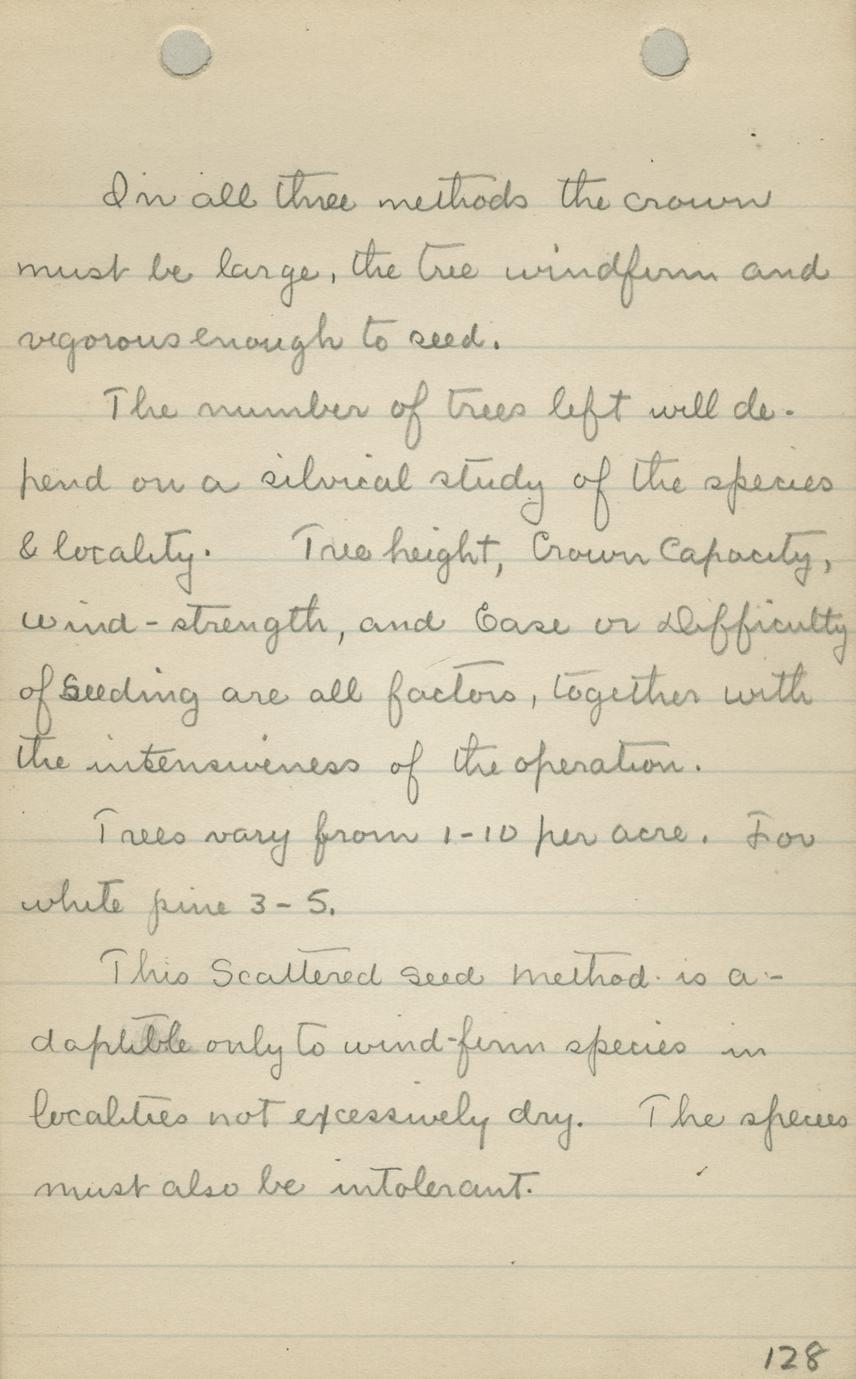 In all three methods the crown
must be large, the tree windfirm and
vigorous enough to seed.
The number of trees left will de-
pend on a silvical study of the species
& locality. Tree height, Crown Capacity,
wind-strength, and Ease or Difficulty
of Seeding are all factors, together with
the intensiveness of the operation.
Trees vary from 1-10 per acre. For
white pine 3-5.
This Scattered seed method is a-
daptible only to wind-firm species in
localities not excessively dry. The species
must also be intolerant.
128